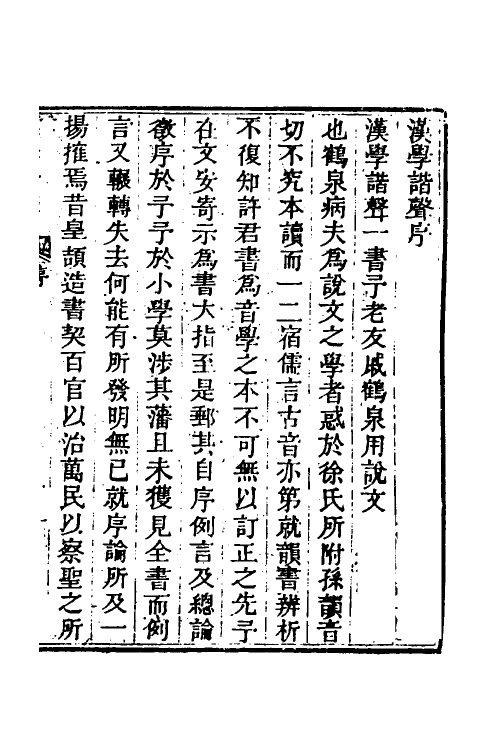 漢學諧聲序
漢學諧聲一書予老友戚鶴泉用說文
也鶴泉病夫為說文之學者惑於徐氏所附孫韻音
切不究本讀而一二宿儒言古音亦第就韻書辨析
不復知許君書為音學之本不可無以訂正之先予
在文安寄示為書大指至是郵其自序例言及總論
徵序於予予於小學莫涉其藩且未獲見全書而例
言又輾轉失去何能有所發明無已就序論所及一
揚搉焉昔皇頡造書契百官以治萬民以察聖之所
序